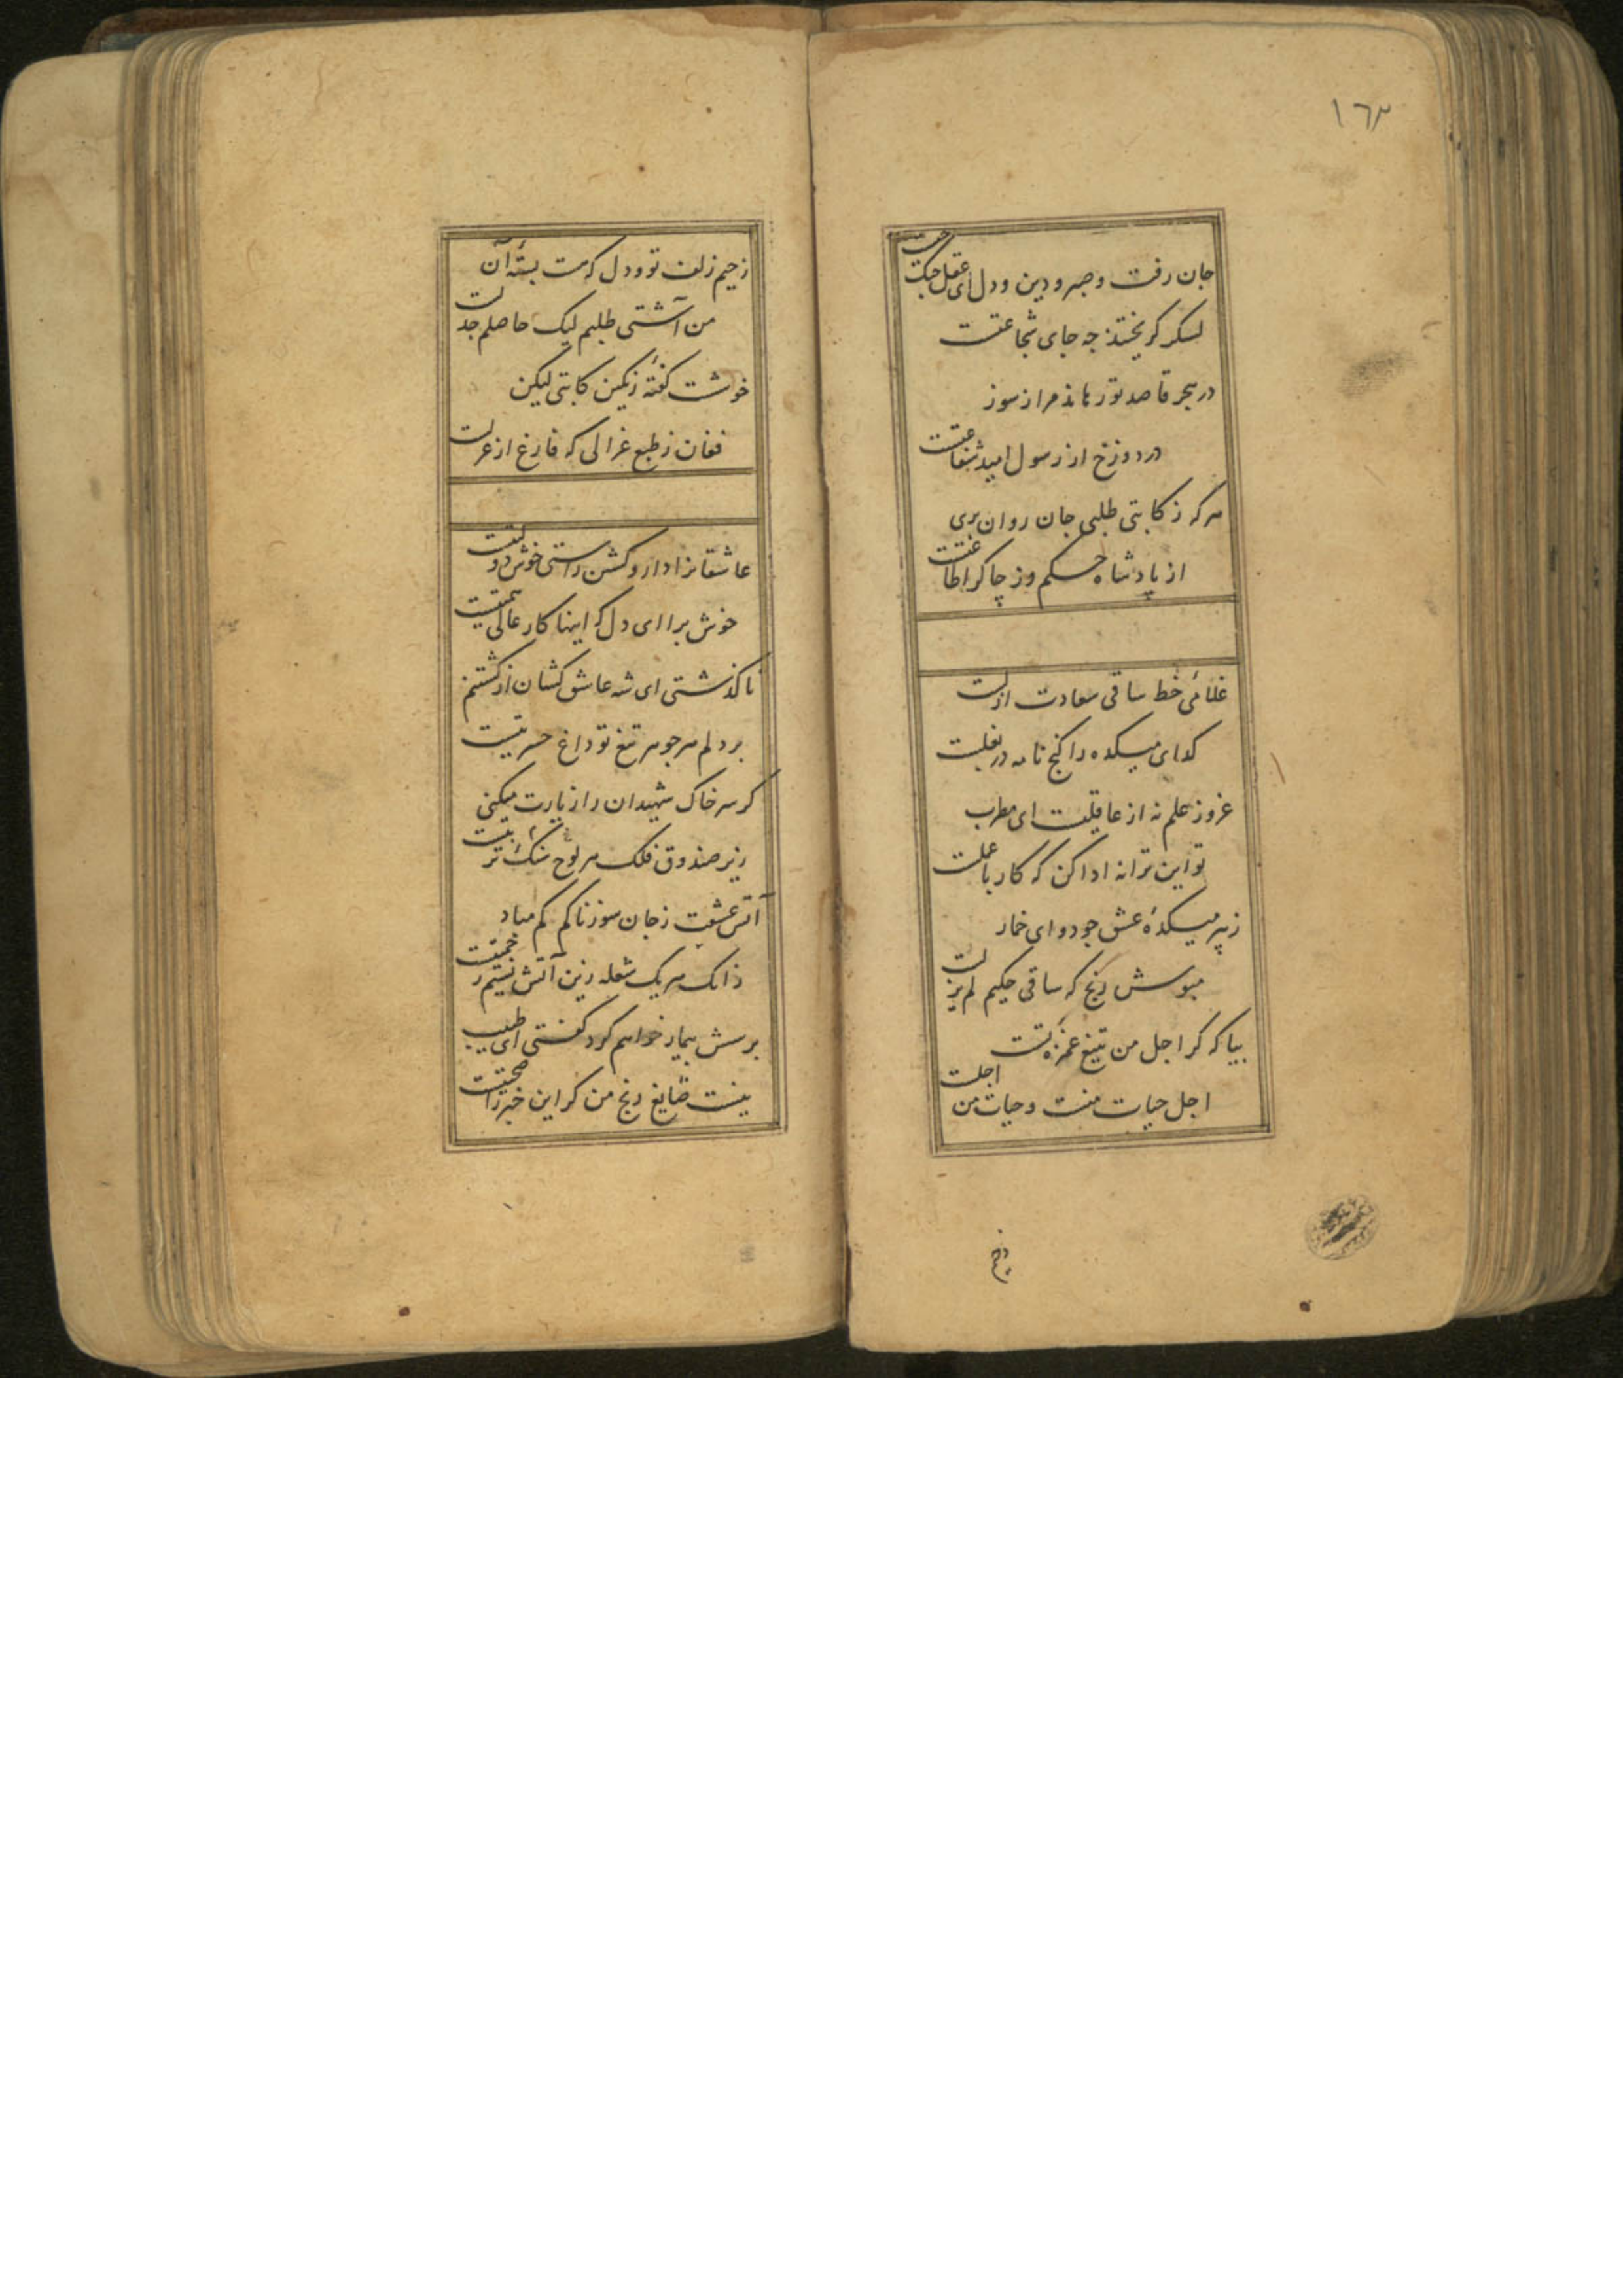 ١٦٣
جان رفت وصبر و دین و دل ای عقل جنگ چیست
لسکر کریختند جه جای شجاعتست
در هجر قاصد تو رهاند مرا ز سوز
در دوزخ از رسول امید شفاعتست
هر که ز کابتی طلبی جان روان بری
از پادشاه حکم وز چاکر اطاعتست
غلامی خط ساقی سعادت ازلست
کدای میکده را کنج نامه در بغلست
غرور علم نه از عاقلیست ای مطرب
تو این ترانه ادا کن که کار با عملست
ز پیر میکدهٔ عشق جو دوای خمار
مبوسش رنج که ساقی حکیم لم یزلست
بیا که کر اجل من تیغ غمزهٔ تست
اجل حیات منست و حیات من اجلست
ز جیم
ز جیم زلف تو و دل که هست بستهٔ آن
من آشتی طلبم لیک حاصلم جدلست
خوشت کفتهٔ رنکین کابتی لیکن
فغان ز طبع غزالی که فارغ از غزلست
عاشقانرا دار و کشتن راستی خوش دولتیست
خوش برا ای دل که اینها کار عالی همتیست
تا کذشتی ای شه عاشق کشان از کشتنم
بر دلم هر جوهر تیغ تو داغ حسرتیست
کر سر خاک شهیدان را زیارت میکنی
زیر صندوق فلک هر لوح سنک تربتیست
آتش عشقت ز جان سوزناکم کم مباد
زانک هر یک شعله زین آتش نسیم رحمتیست
پرسش بیمار خواهم کرد کفتی ای طبیب
نیست ضایع رنج من کر این خبر را صحتیست